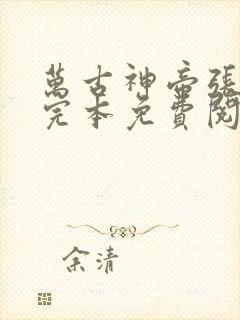 萬古神帝張
完本免費閱
余清